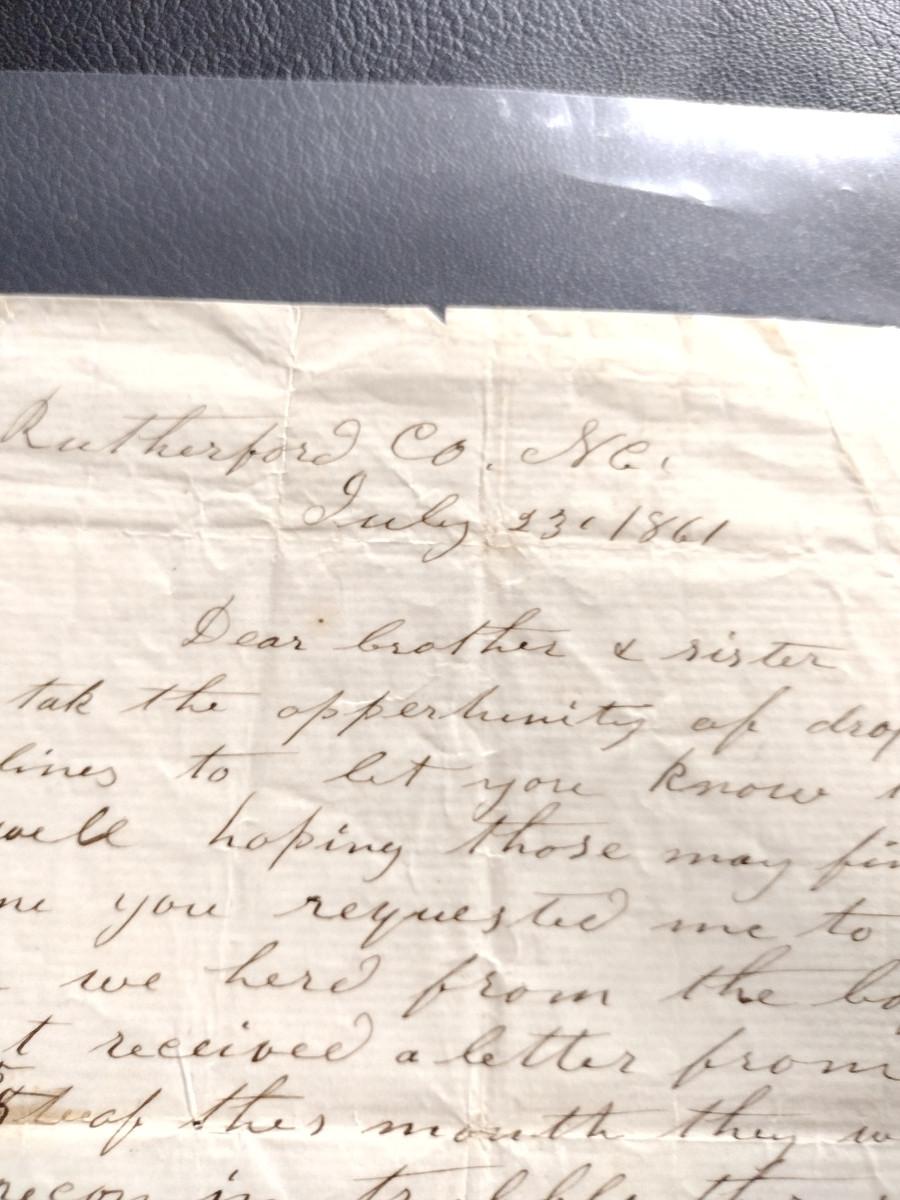 Rutherford Co. NC.
July 23. 1861
Dear brother & sister
tak the oppertunity of drop
lines to let you know
well hoping those may fin
me you requested me to
we herd from the bo
t received a letter from
of thes month they w
in